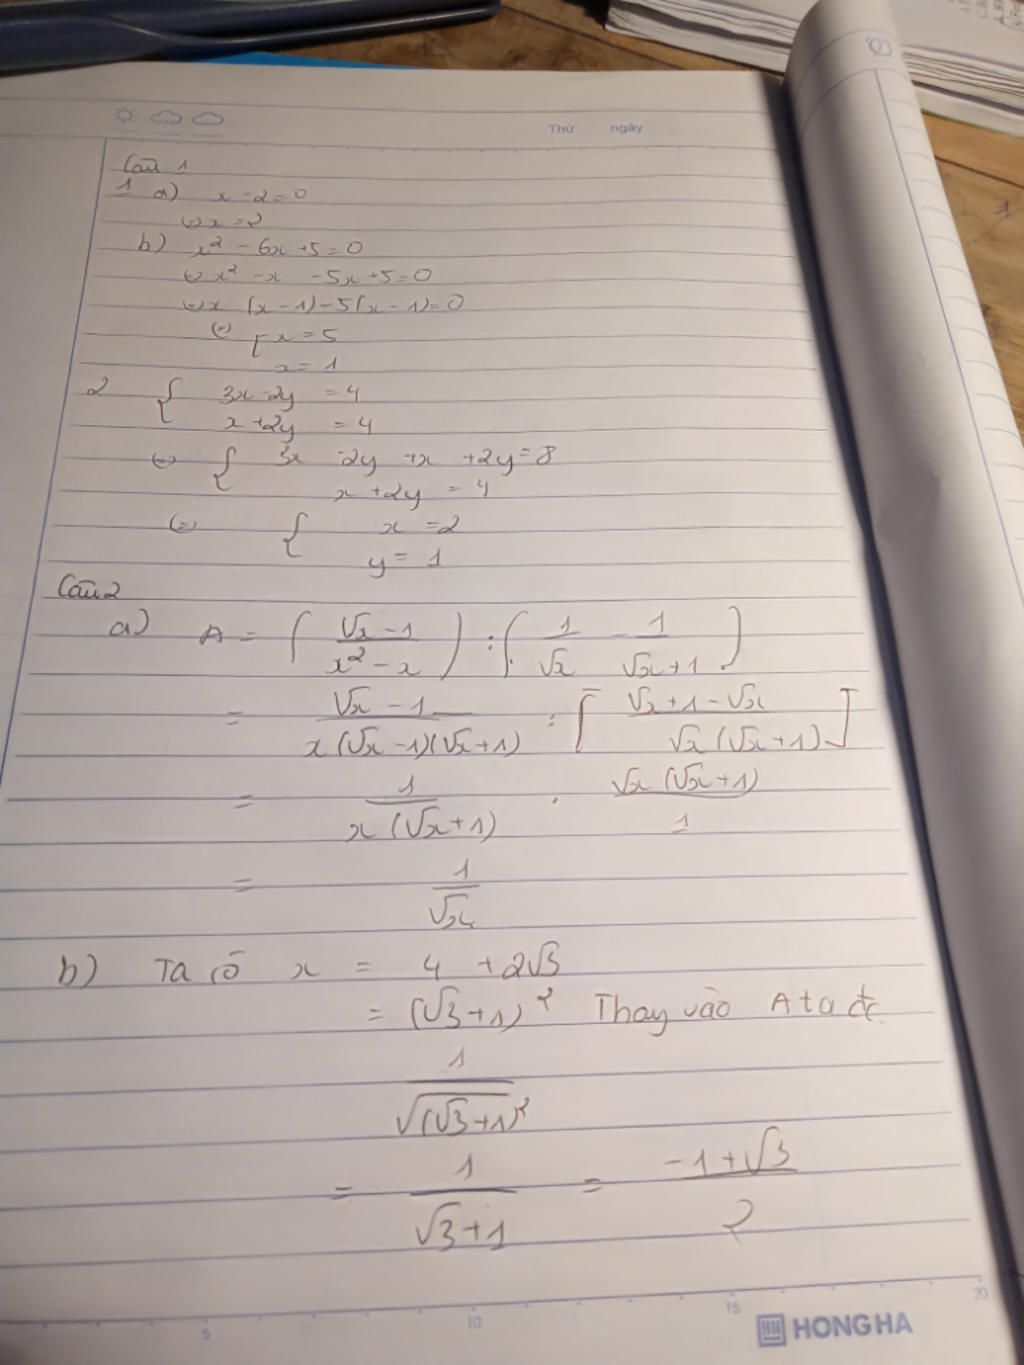 Thứ ngày
Câu 1
1 a) x - 2 = 0
⇔ x = 2
b) x² - 6x + 5 = 0
⇔ x² - x - 5x + 5 = 0
⇔ x (x - 1) - 5(x - 1) = 0
⇔ [ x = 5
x = 1
2 { 3x - 2y = 4
x + 2y = 4
⇔ { 3x - 2y + x + 2y = 8
x + 2y = 4
⇔ { x = 2
y = 1
Câu 2
a) A = ( (√x - 1)/(x² - x) ) : ( 1/√x - 1/(√x + 1) )
= (√x - 1)/(x(√x - 1)(√x + 1)) : [ (√x + 1 - √x)/(√x (√x + 1)) ]
= 1/(x (√x + 1)) . (√x (√x + 1))/1
= 1/√x
b) Ta có x = 4 + 2√3
= (√3 + 1)² Thay vào A ta đc
1/√((√3 + 1)²)
= 1/(√3 + 1) = (-1 + √3)/2
5 10 15 20
HONG HA